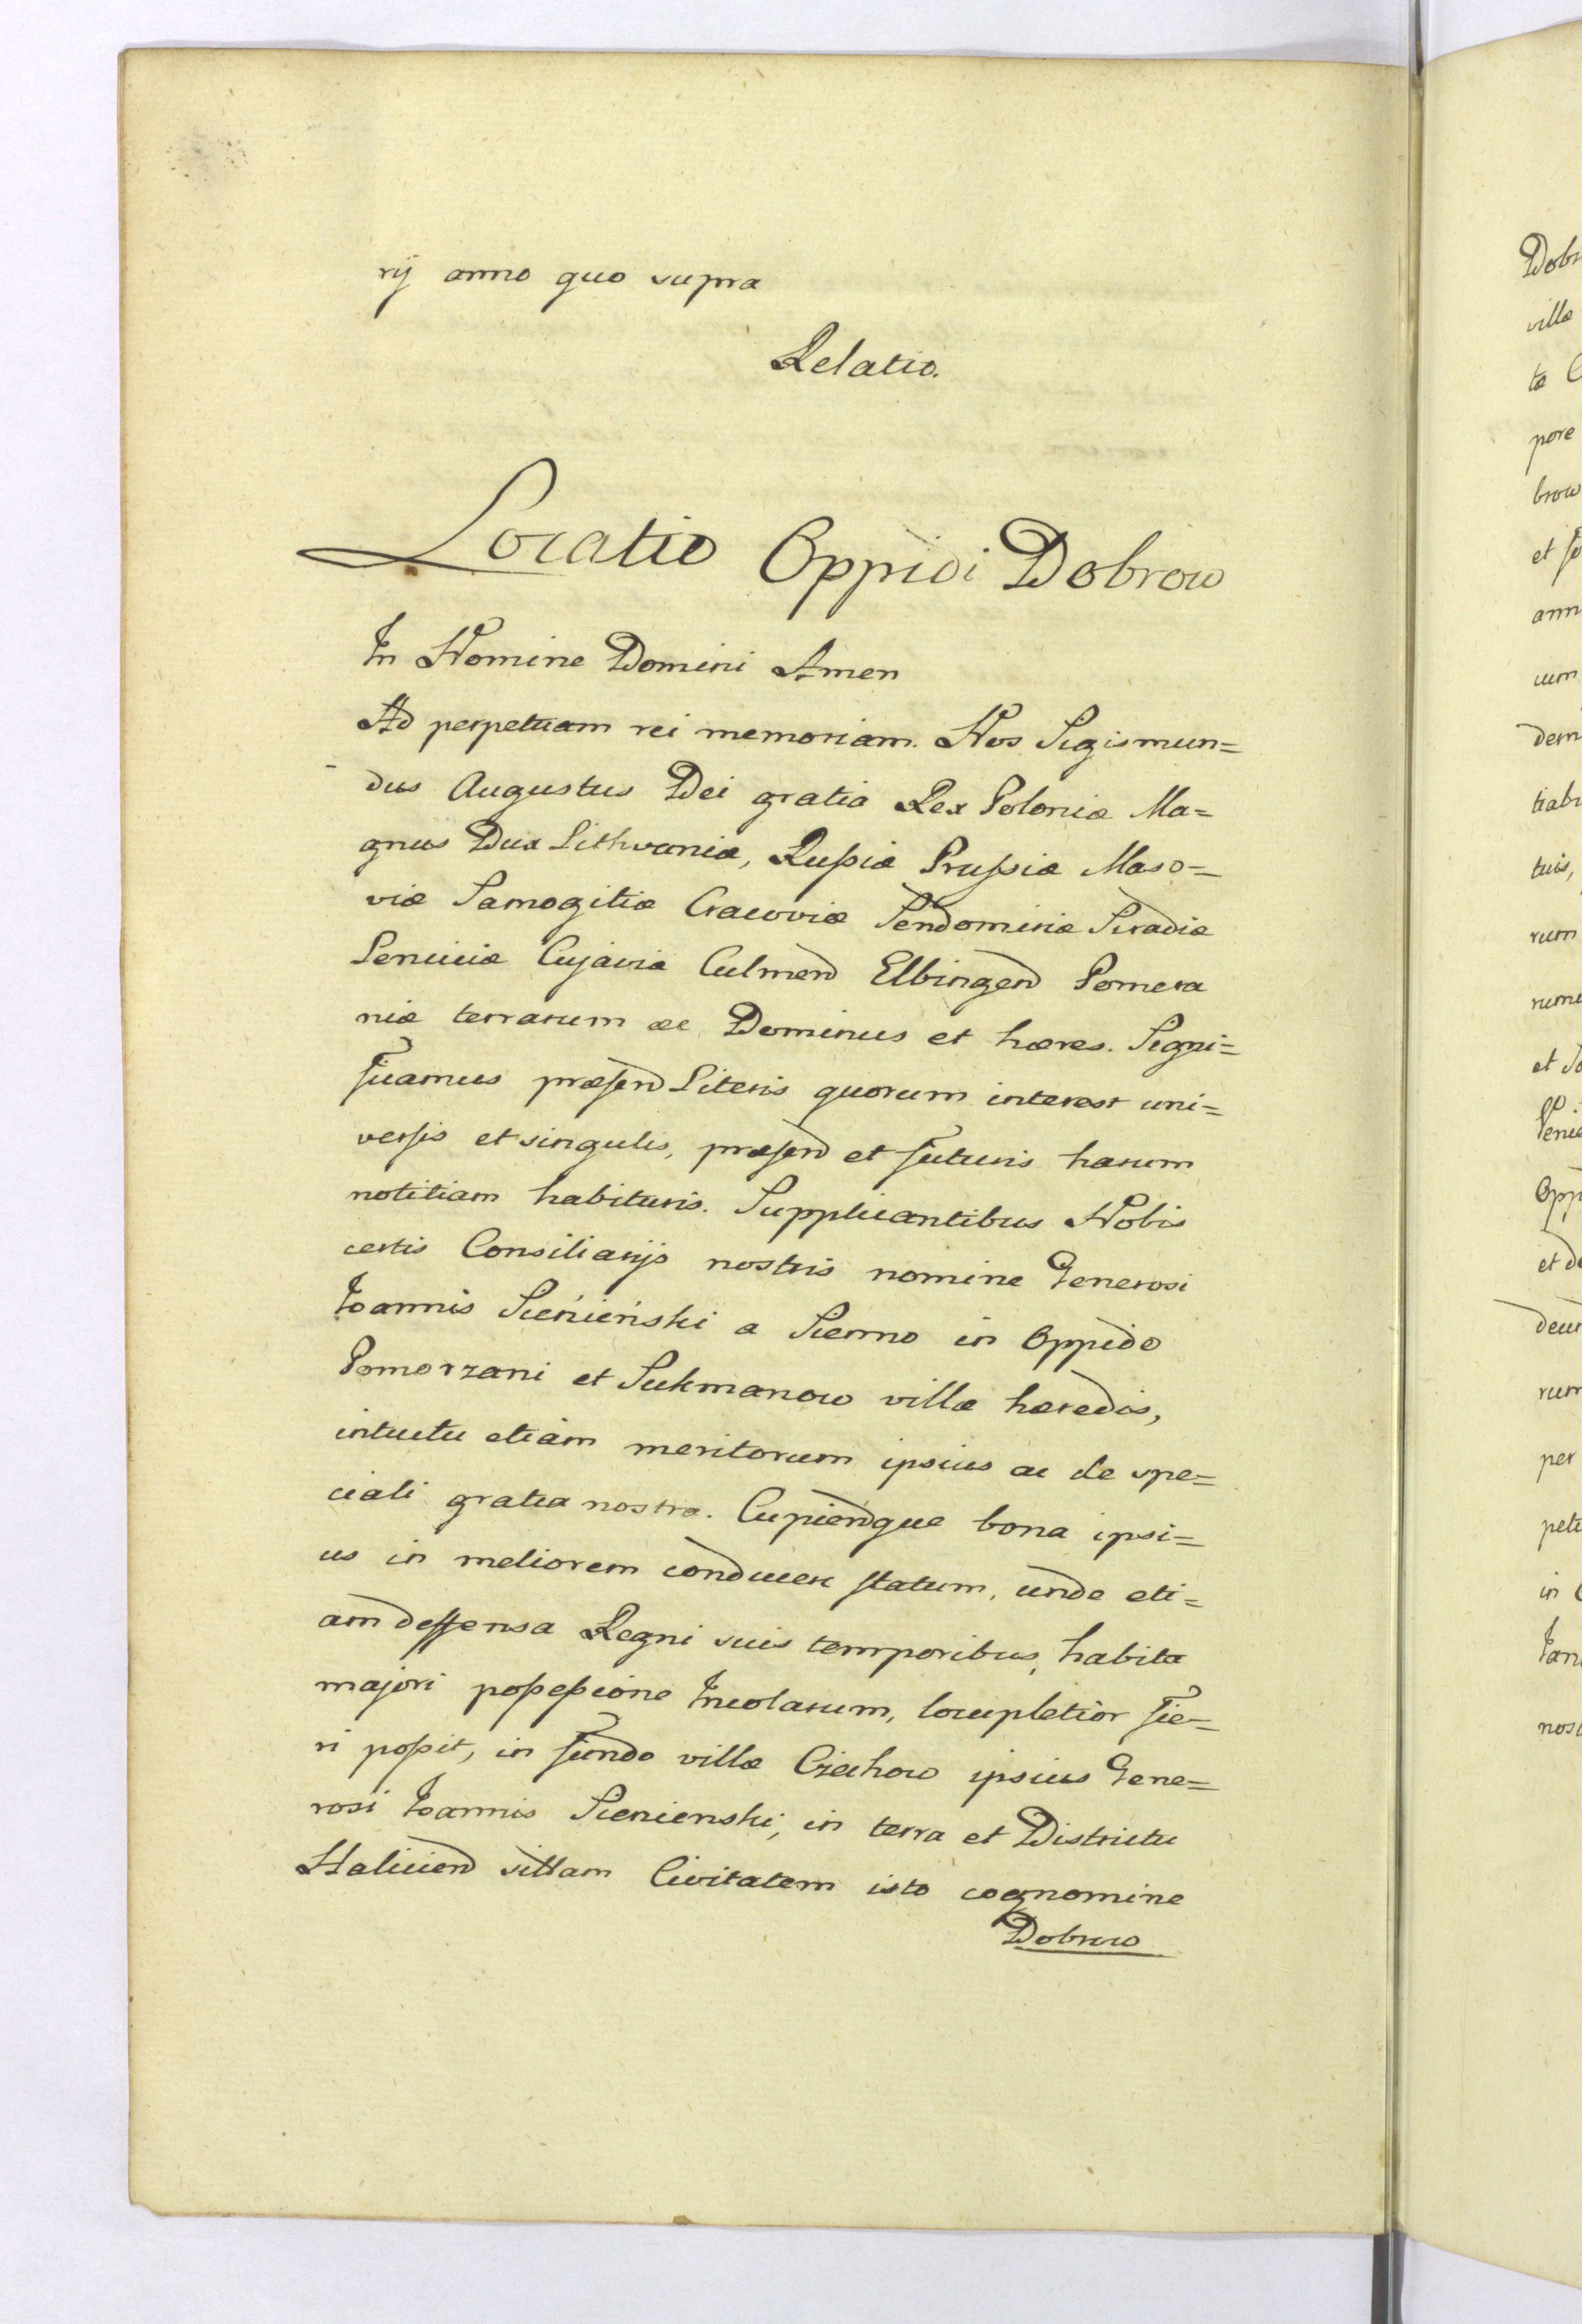 rij anno quo supra
Relatio.
Locatio Oppidi Dobrow
In Nomine Domini Amen
Ad perpetuam rei memoriam. Nos Sigismun=
dus Augustus Dei gratia Rex Poloniæ Ma=
gnus Dux Lithvaniæ, Rußiæ Prußiæ Maso=
viæ Samogitiæ Cracoviæ Sendomiriæ Siradiæ
Lenciciæ Cujaviæ Culmen Elbingen Pomera
niæ terrarum ac Dominus et hæres. Signi=
ficamus præsen Literis quorum interest uni=
versis et singulis, præsen et futuris harum
notitiam habituris. Supplicantibus Nobis
certis Consiliarijs nostris nomine Generosi
Joannis Sieninński a Sienno in Oppido
Pomorzani et Sukmanow villæ hæredis,
intuitu etiam meritorum ipsius ac de spe=
ciali gratia nostra. Cupienque bona ipsi=
us in meliorem conducere statum, unde eti=
am deffensa Regni suis temporibus, habita
majori poßeßione Incolarum, locupletior fie=
ri poßit, in fundo villæ Ciechow ipsius Gene=
rosi Joannis Sienienski, in terra et Districtu
Halicien sittam Civitatem isto cognomine
Dobrow
Dobr
villæ
ta
pore
brow
et
ann
cum
dem
tuis,
rum
et
Opp
et de
rum
per
in
nost